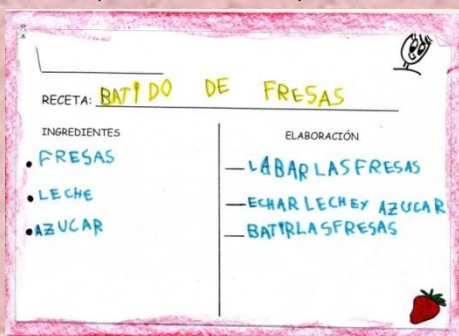 RECETA: BATIDO DE FRESAS
INGREDIENTES
• FRESAS
• LECHE
• AZUCAR
ELABORACIÓN
— LABAR LAS FRESAS
— ECHAR LECHE Y AZUCAR
— BATIR LAS FRESAS